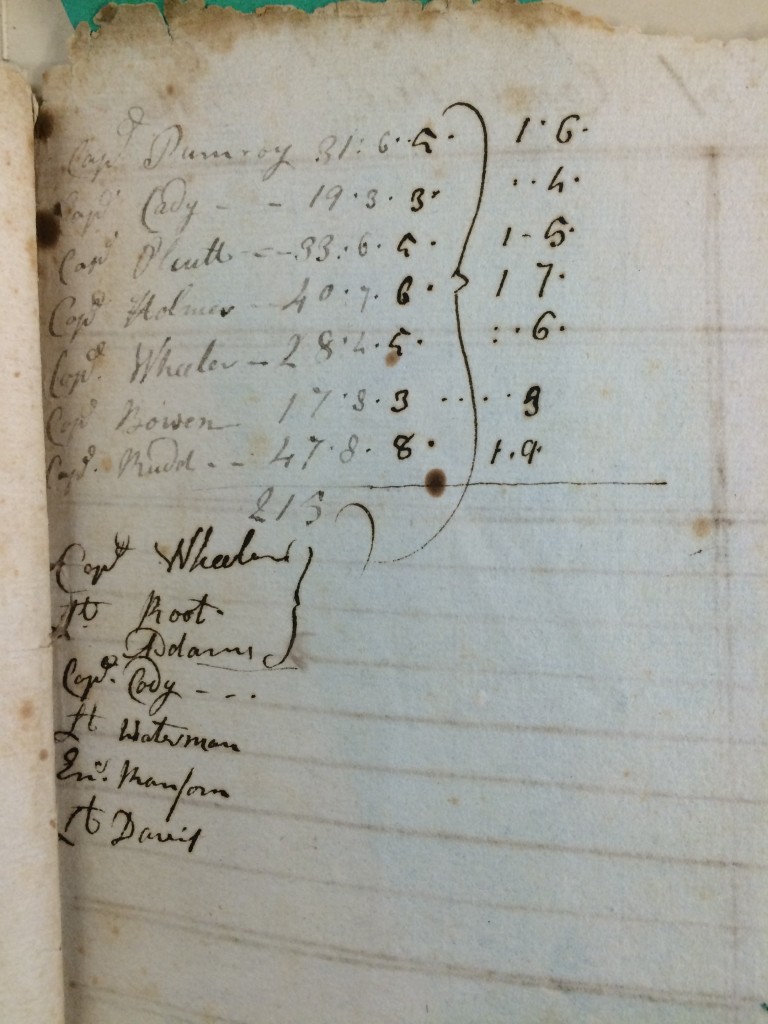 Capt Pumroy 31 : 6 . 5 . 1 . 6 .
Capt Cady - - 19 . 3 . 3 . . . 4 .
Capt - - 33 . 6 . 5 . 1 - 5 .
Capt Holmes - 40 . 7 . 6 . 1 7 .
Capt Wheeler - 28 . 4 . 5 . : . 6 .
Capt Bowen 17 . 3 . 3 . . . . 3
Capt Rudd - - 47 . 8 . 8 . 1 . 9 .
215
Capt Wheeler
Lt Root
Adams
Capt Cady - - .
Lt Waterman
Ens. Ransom
Lt Davis